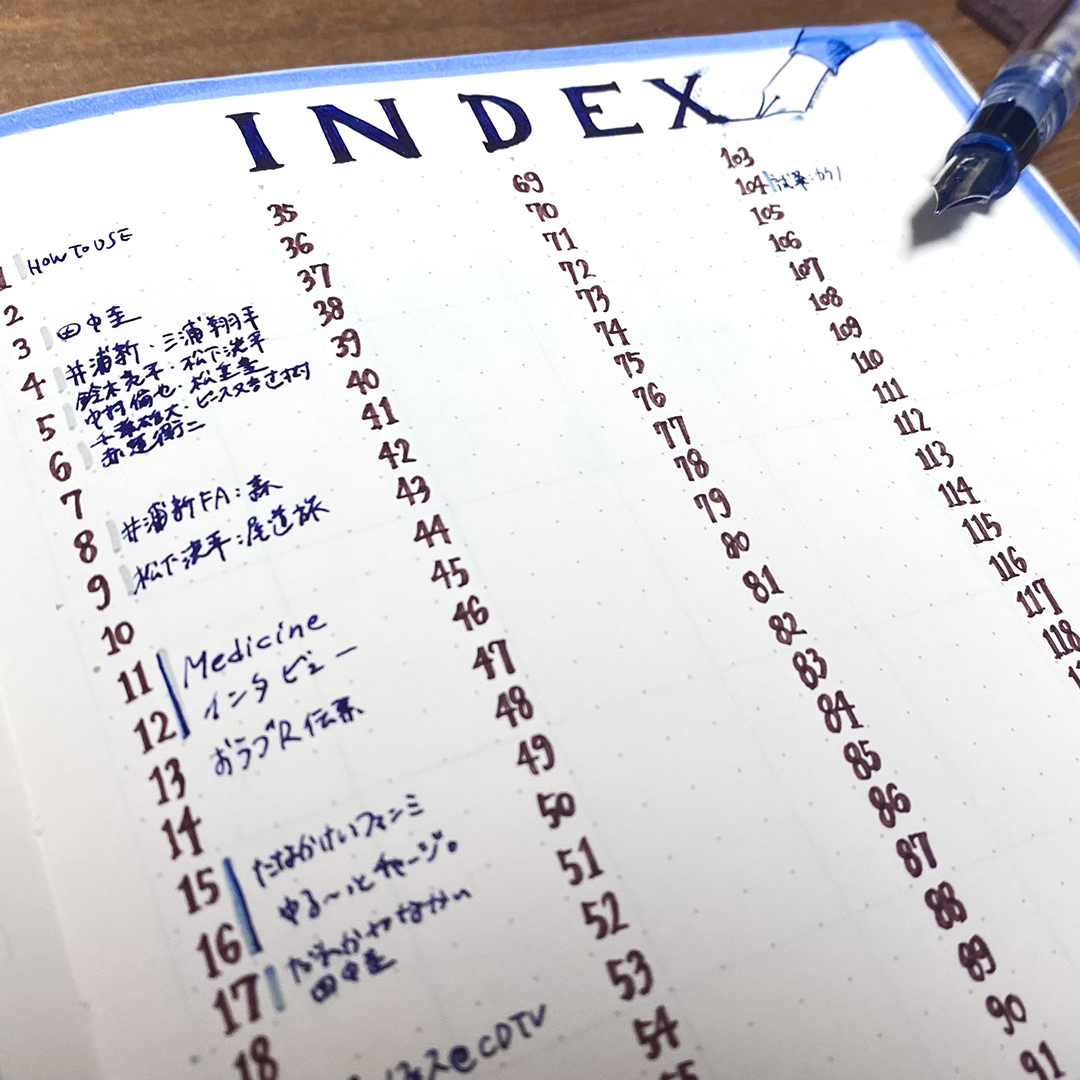 INDEX
1 HOW TO USE
2
3 田中圭
4 井浦新・三浦翔平
鈴木亮平・松下洸平
5 中村倫也・松重豊
千葉雄大・ピース又吉直樹
6 赤楚衛二
7
8 井浦新FA:森
9 松下洸平:尾道旅
10
11 Medicine
12 インタビュー
13 おラブR伝票
14
15 たなかけいフェンミ
16 ゆる〜っとチャージ。
17
田中圭
18
@CDTV
35
36
37
38
39
40
41
42
43
44
45
46
47
48
49
50
51
52
53
54
69
70
71
72
73
74
75
76
77
78
79
80
81
82
83
84
85
86
87
88
89
90
91
103
104 試筆:から
105
106
107
108
109
110
111
112
113
114
115
116
117
118